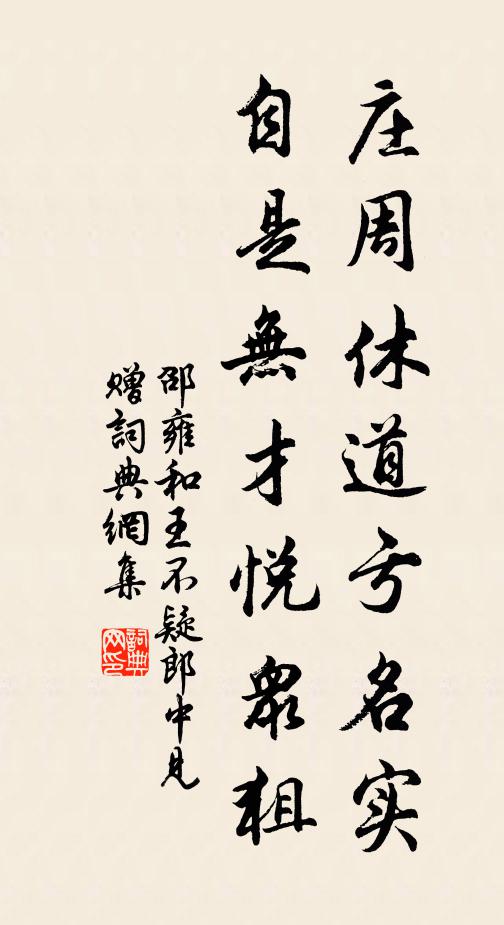 庄周休道亏名实
自是無才悦衆狙
邵雍和王不疑郎中見
贈詞典網集
詞典网印